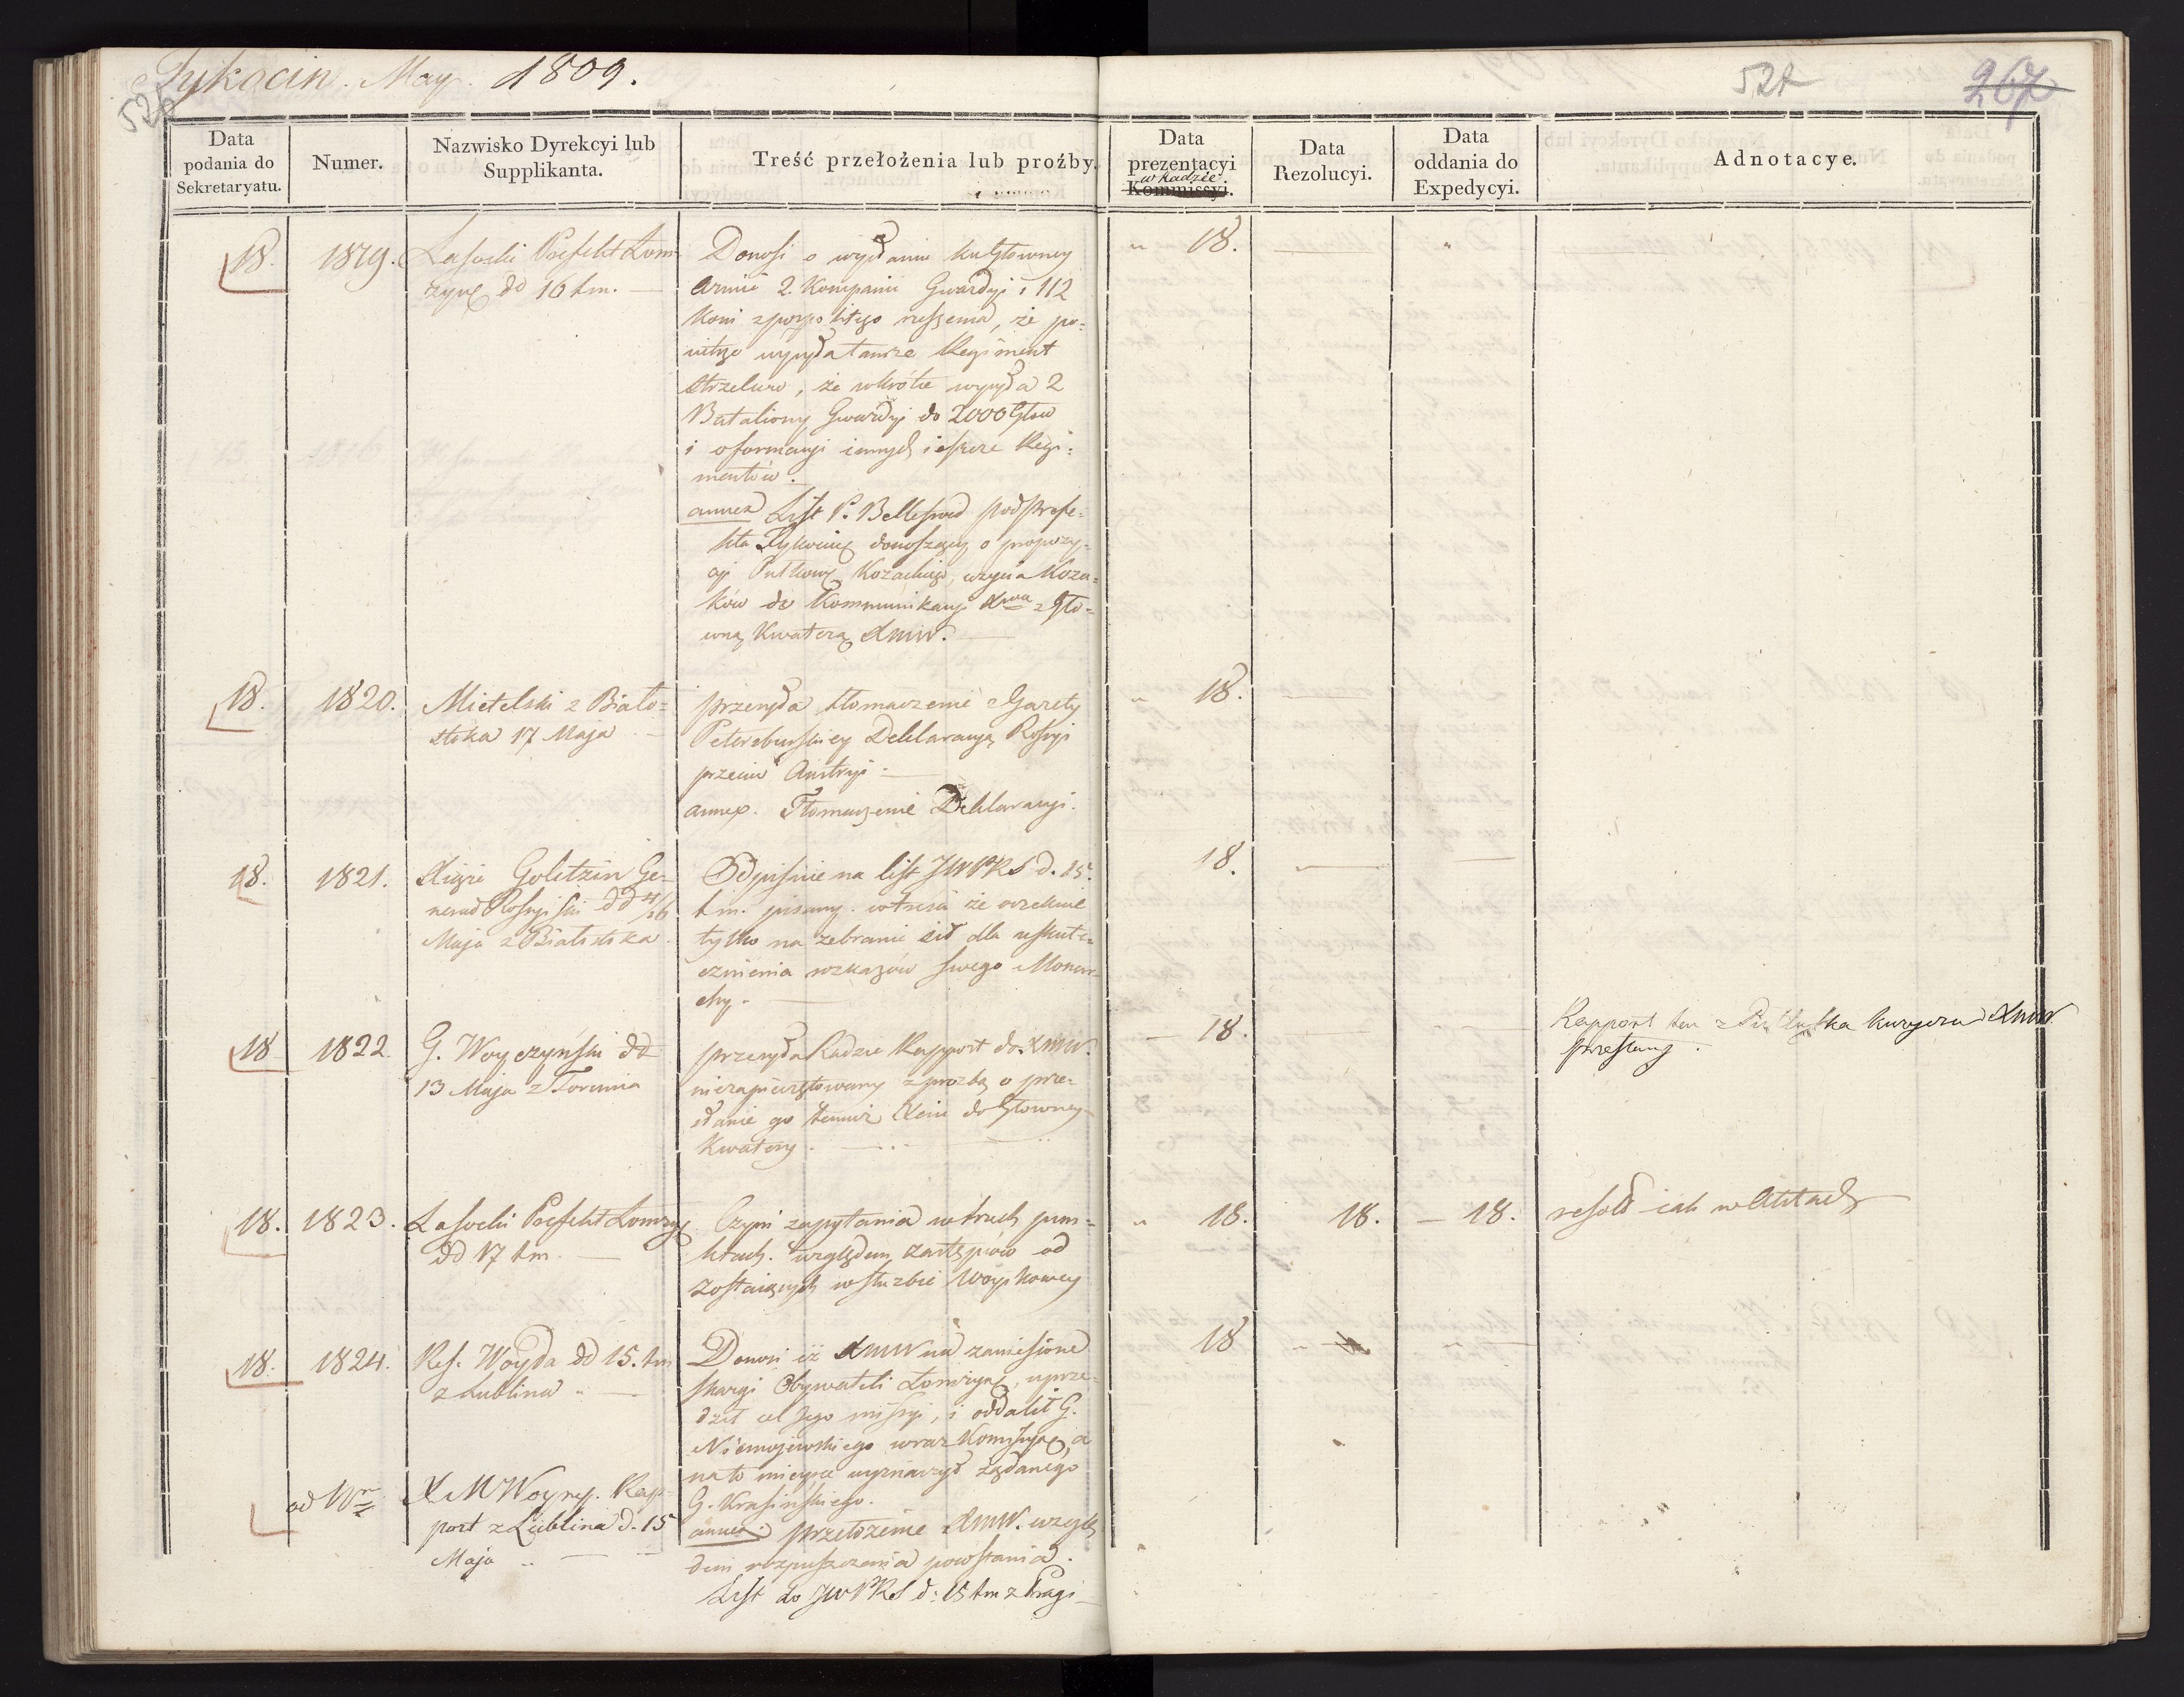 Tykocin. May. 1809.
527
527
267
Data podania do Sekretaryatu.
Numer.
Nazwisko Dyrekcyi lub Supplikanta.
Treść przełożenia lub proźby.
Data prezentacyi w Radzie Kommissyi.
Data Rezolucyi.
Data oddania do Expedycyi.
Adnotacye.
18. 1819. Lasocki Prefekt Łom-
żyń dd 16 t.m.
Donosi o wysłaniu ku Głowney
Armii 2. Kompanii Gwardyi i 112
koni z pospolitego ruszenia, że po-
jutrze wysyła tamże Regiment
Strzelców, że wkrótce wysyła 2
Bataliony Gwardyi do 2000 Głow
i o formacyi innych ieszcze Regi-
mentów.
annex List P.
podprefe-
kta Tykociń donoszący o propozy-
cyi Pułkow Kozackiego, użycia Koza-
ków do Kommunikacyi z Gło-
wną Kwaterą XMW.
18.
18. 1820. Mietelski z Biało-
stoka 17 Maja
przesyła tłomaczenie Gazety
Petersburskiey Deklaracyą Rossyi
przeciw Austryi
annex. Tłomaczenie Deklaracyi.
18.
18. 1821. Xiąże Golitzin Ge-
nerał Rossyiski dd 4/16
Maja z Białostoka
Odpisuie na list JWPRS d. 15.
t.m. pisany. w treści że oczekuie
tylko na zebranie sił dla uskute-
cznienia rozkazów swego Monar-
chy.
18.
18 1822. G. Woyczyński dd
13 Maja z Torunia
przesyła Radzie Rapport do XMW.
niezapieczętowany z prozbą o prze-
słanie go temuż Xciu do Głowney
Kwatery.
18.
Rapport ten z Pułtuska kuryerem XMW
przesłany.
18. 1823. Lasocki Prefekt Łomży
dd 17 t.m.
Czyni zapytania w trzech pun-
ktach. względem zastępców od
zostaiących w służbie Woyskowey
18. 18. 18.
resold iak w Aktach
18. 1824. Ref. Woyda dd 15. tm
z Lublina
Donosi iż XMW na zaniesione
skargi Obywateli Łomżyń, uprze-
dził cel Jego missyi, i oddalił G.
Niemojewskiego wraz Komissyą, a
na to mieysce wyznaczył żądanego
G. Krasińskiego.
18
ad Nr X M Woyny. Rap-
port z Lublina d. 15
Maja
annex. przełożenie XMW. wzglę-
dem rozpuszczenia powstania.
List do JWPRS d. 15 tm z Pragi